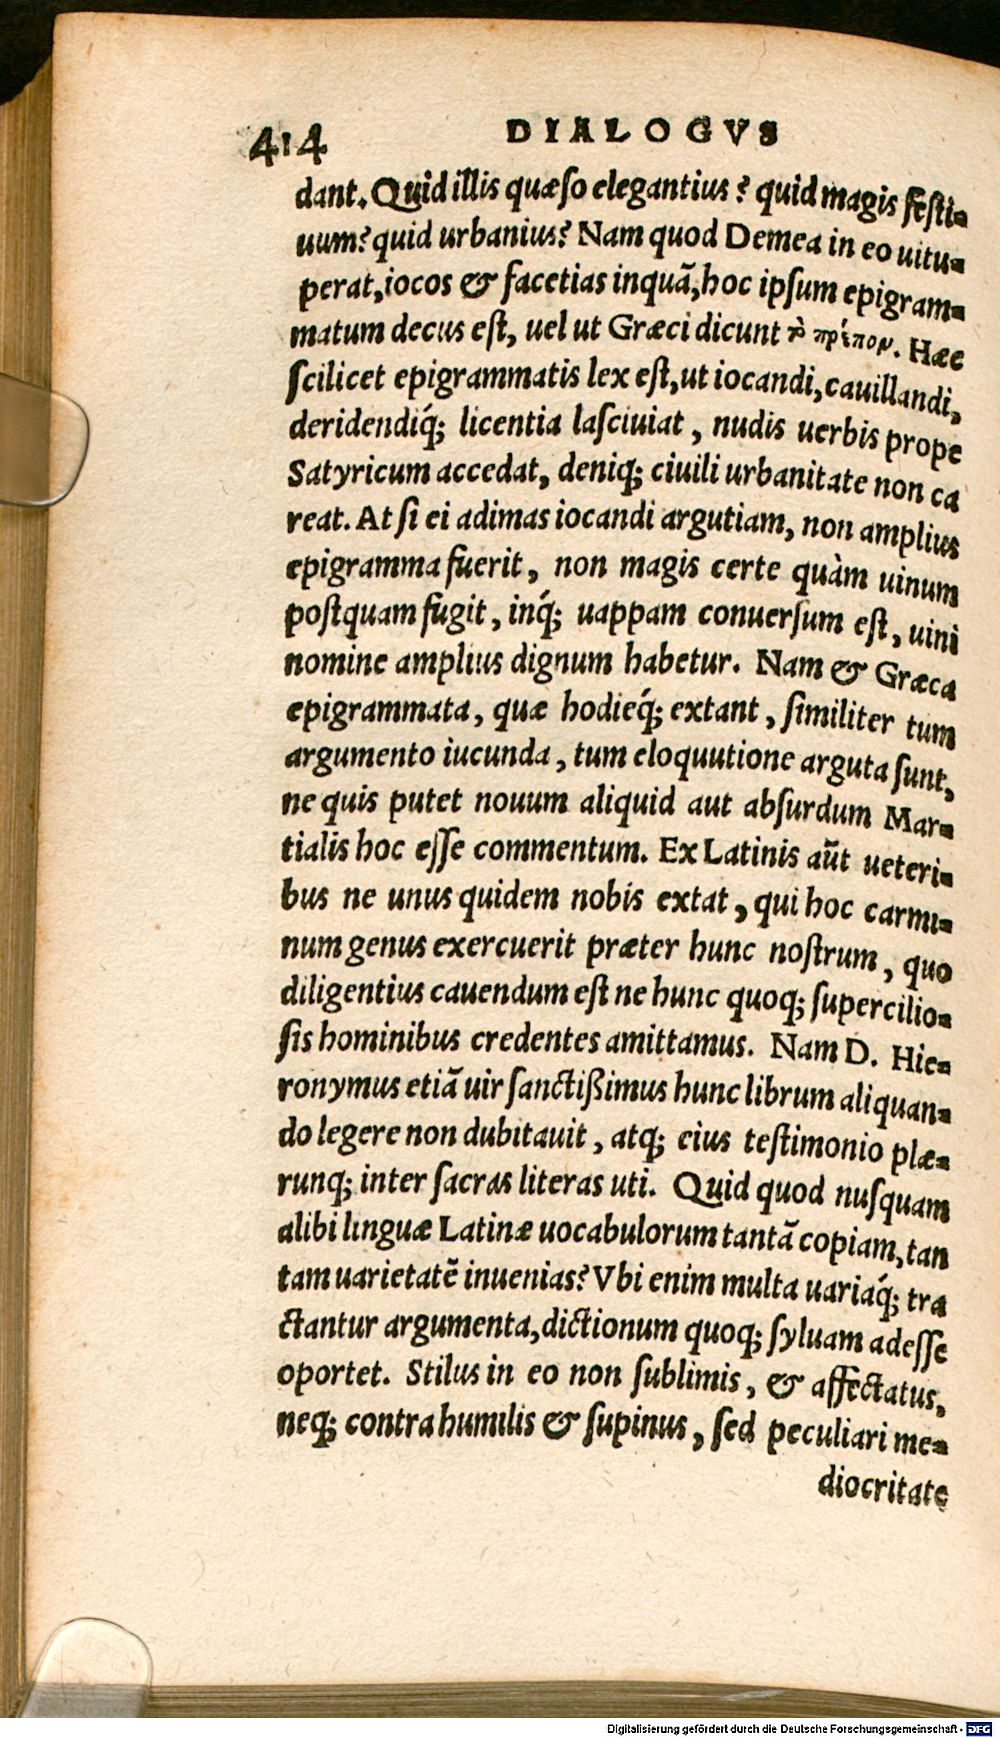 414 DIALOGVS
dant. Quid illis quæso elegantius? quid magis festi-
uum? quid urbanius? Nam quod Demea in eo uitu-
perat, iocos & facetias inquã, hoc ipsum epigram-
matum decus est, uel ut Græci dicunt τὸ πρέπον. Hæc
scilicet epigrammatis lex est, ut iocandi, cauillandi,
deridendiq́; licentia lasciuiat, nudis uerbis prope
Satyricum accedat, deniq; ciuili urbanitate non ca
reat. At si ei adimas iocandi argutiam, non amplius
epigramma fuerit, non magis certe quàm uinum
postquam fugit, inq́; uappam conuersum est, uini
nomine amplius dignum habetur. Nam & Græca
epigrammata, quæ hodieq́; extant, similiter tum
argumento iucunda, tum eloquutione arguta sunt,
ne quis putet nouum aliquid aut absurdum Mar-
tialis hoc esse commentum. Ex Latinis aũt ueteri-
bus ne unus quidem nobis extat, qui hoc carmi-
num genus exercuerit præter hunc nostrum, quo
diligentius cauendum est ne hunc quoq; supercilio-
sis hominibus credentes amittamus. Nam D. Hie-
ronymus etiã uir sanctißimus hunc librum aliquan-
do legere non dubitauit, atq; eius testimonio plæ-
runq; inter sacras literas uti. Quid quod nusquam
alibi linguæ Latinæ uocabulorum tantã copiam, tan
tam uarietatẽ inuenias? Vbi enim multa uariaq́; tra
ctantur argumenta, dictionum quoq; syluam adesse
oportet. Stilus in eo non sublimis, & affectatus,
neq; contra humilis & supinus, sed peculiari me-
diocritate
Digitalisierung gefördert durch die Deutsche Forschungsgemeinschaft - DFG